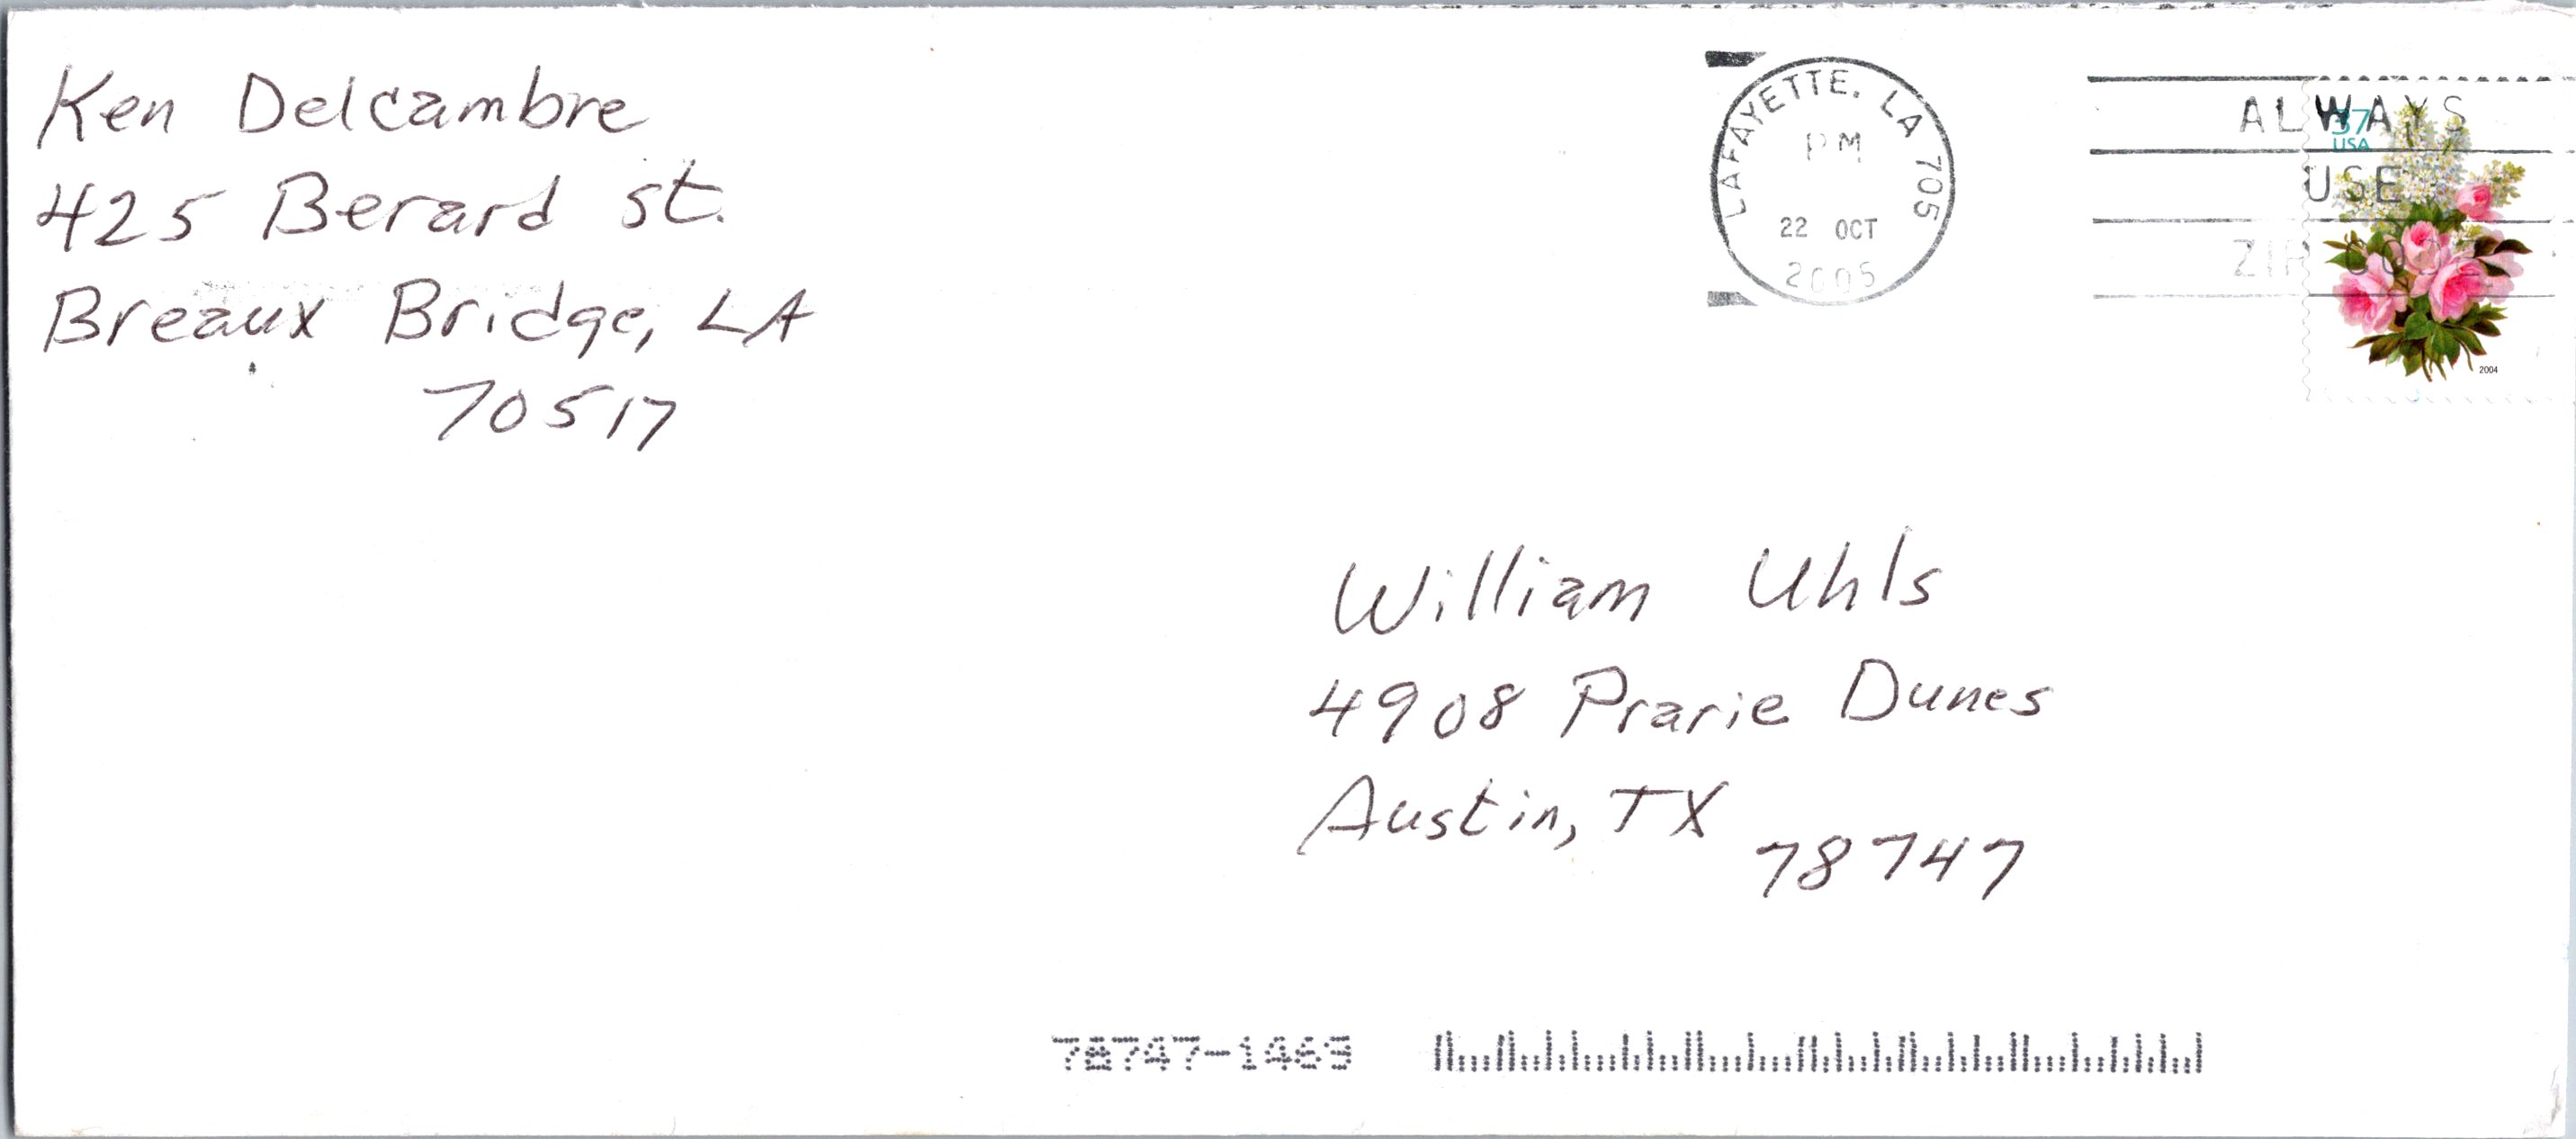 Ken Delcambre
425 Berard St.
Breaux Bridge, LA
70517
LAFAYETTE, LA 705
PM
22 OCT
2005
ALWAYS
USE
ZIP CODE
37
USA
2004
William Uhls
4908 Prarie Dunes
Austin, TX
78747
78747-1463